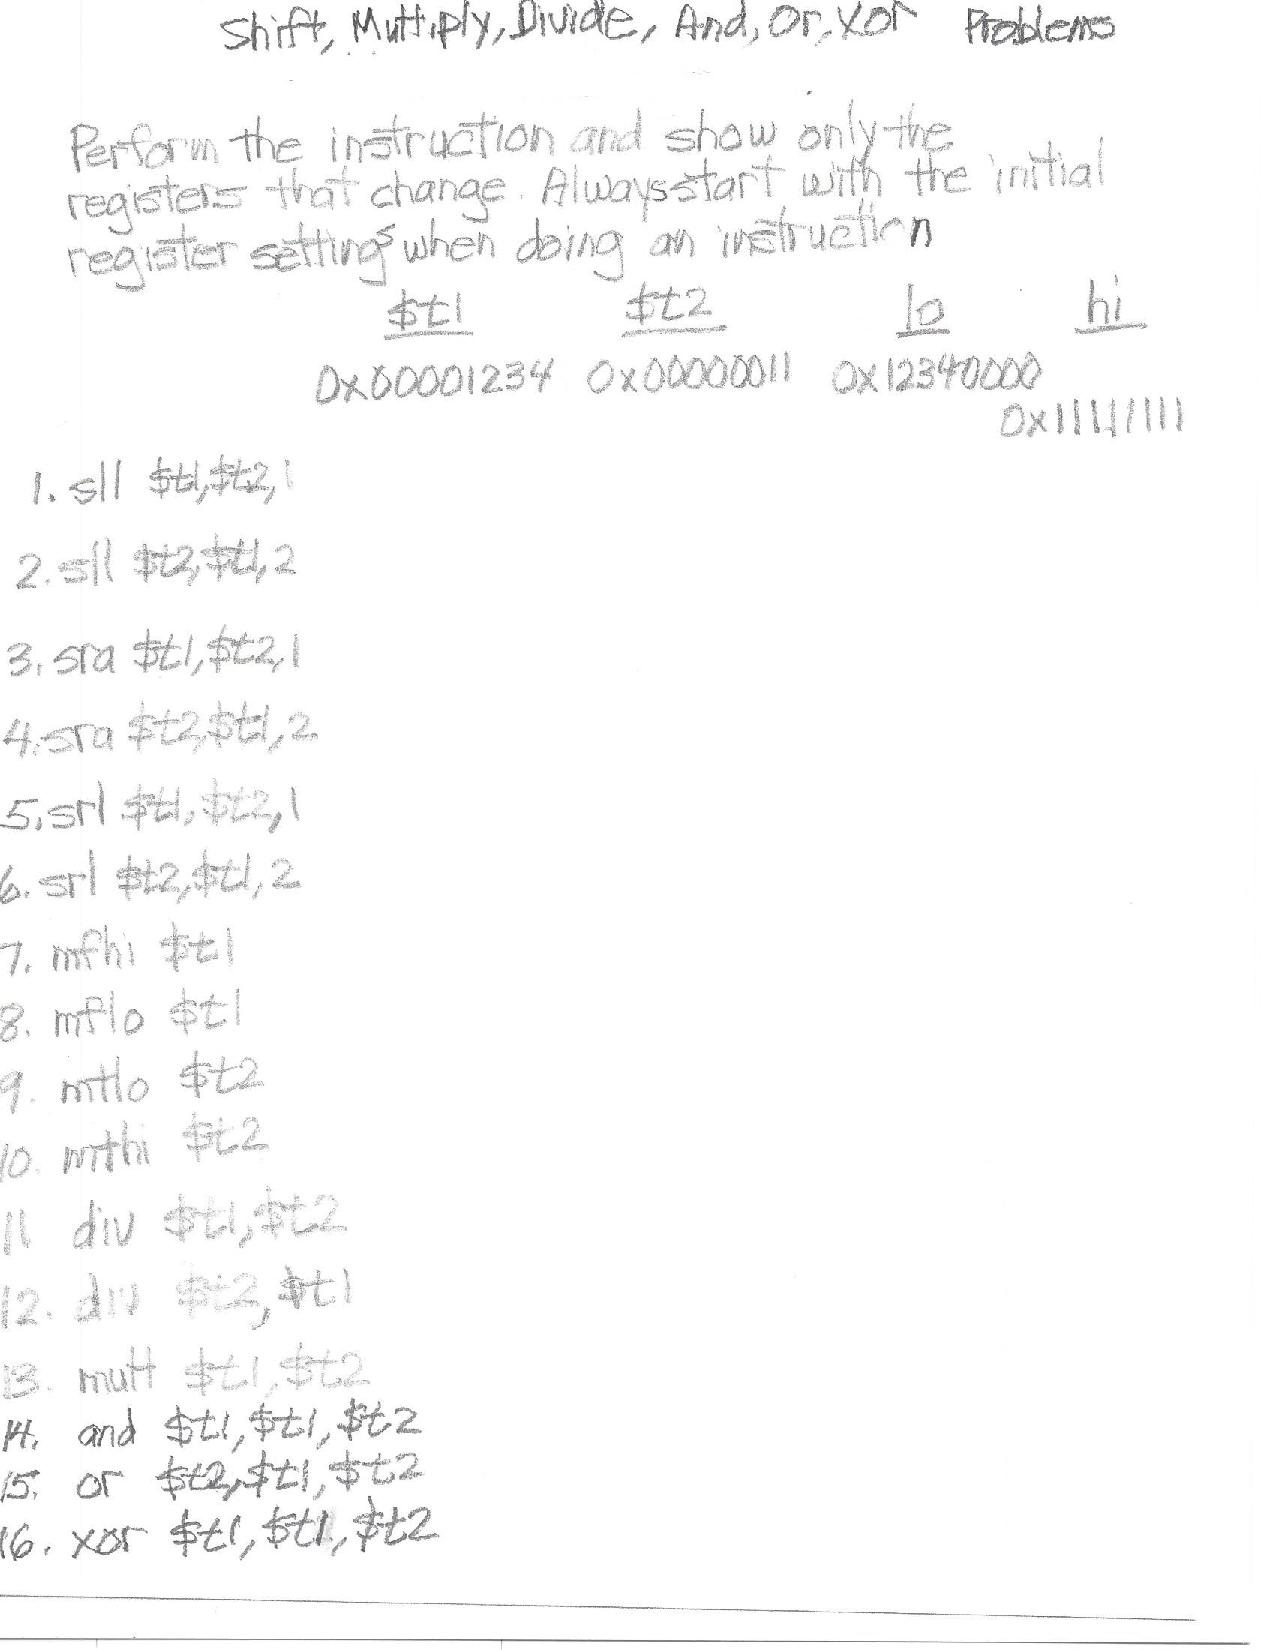 Shift, Multiply, Divide, And, Or, Xor Problems
Perform the instruction and show only the
registers that change. Always start with the initial
register settings when doing an instruction
$t1 $t2 lo hi
0x00001234 0x00000011 0x12340000
0x11111111
1. sll $t1,$t2,1
2. sll $t2,$t1,2
3. sra $t1,$t2,1
4. sra $t2,$t1,2
5. srl $t1,$t2,1
6. srl $t2,$t1,2
7. mfhi $t1
8. mflo $t1
9. mtlo $t2
10. mthi $t2
11 div $t1,$t2
12. div $t2,$t1
13. mult $t1,$t2
14. and $t1,$t1,$t2
15. or $t2,$t1,$t2
16. xor $t1,$t1,$t2